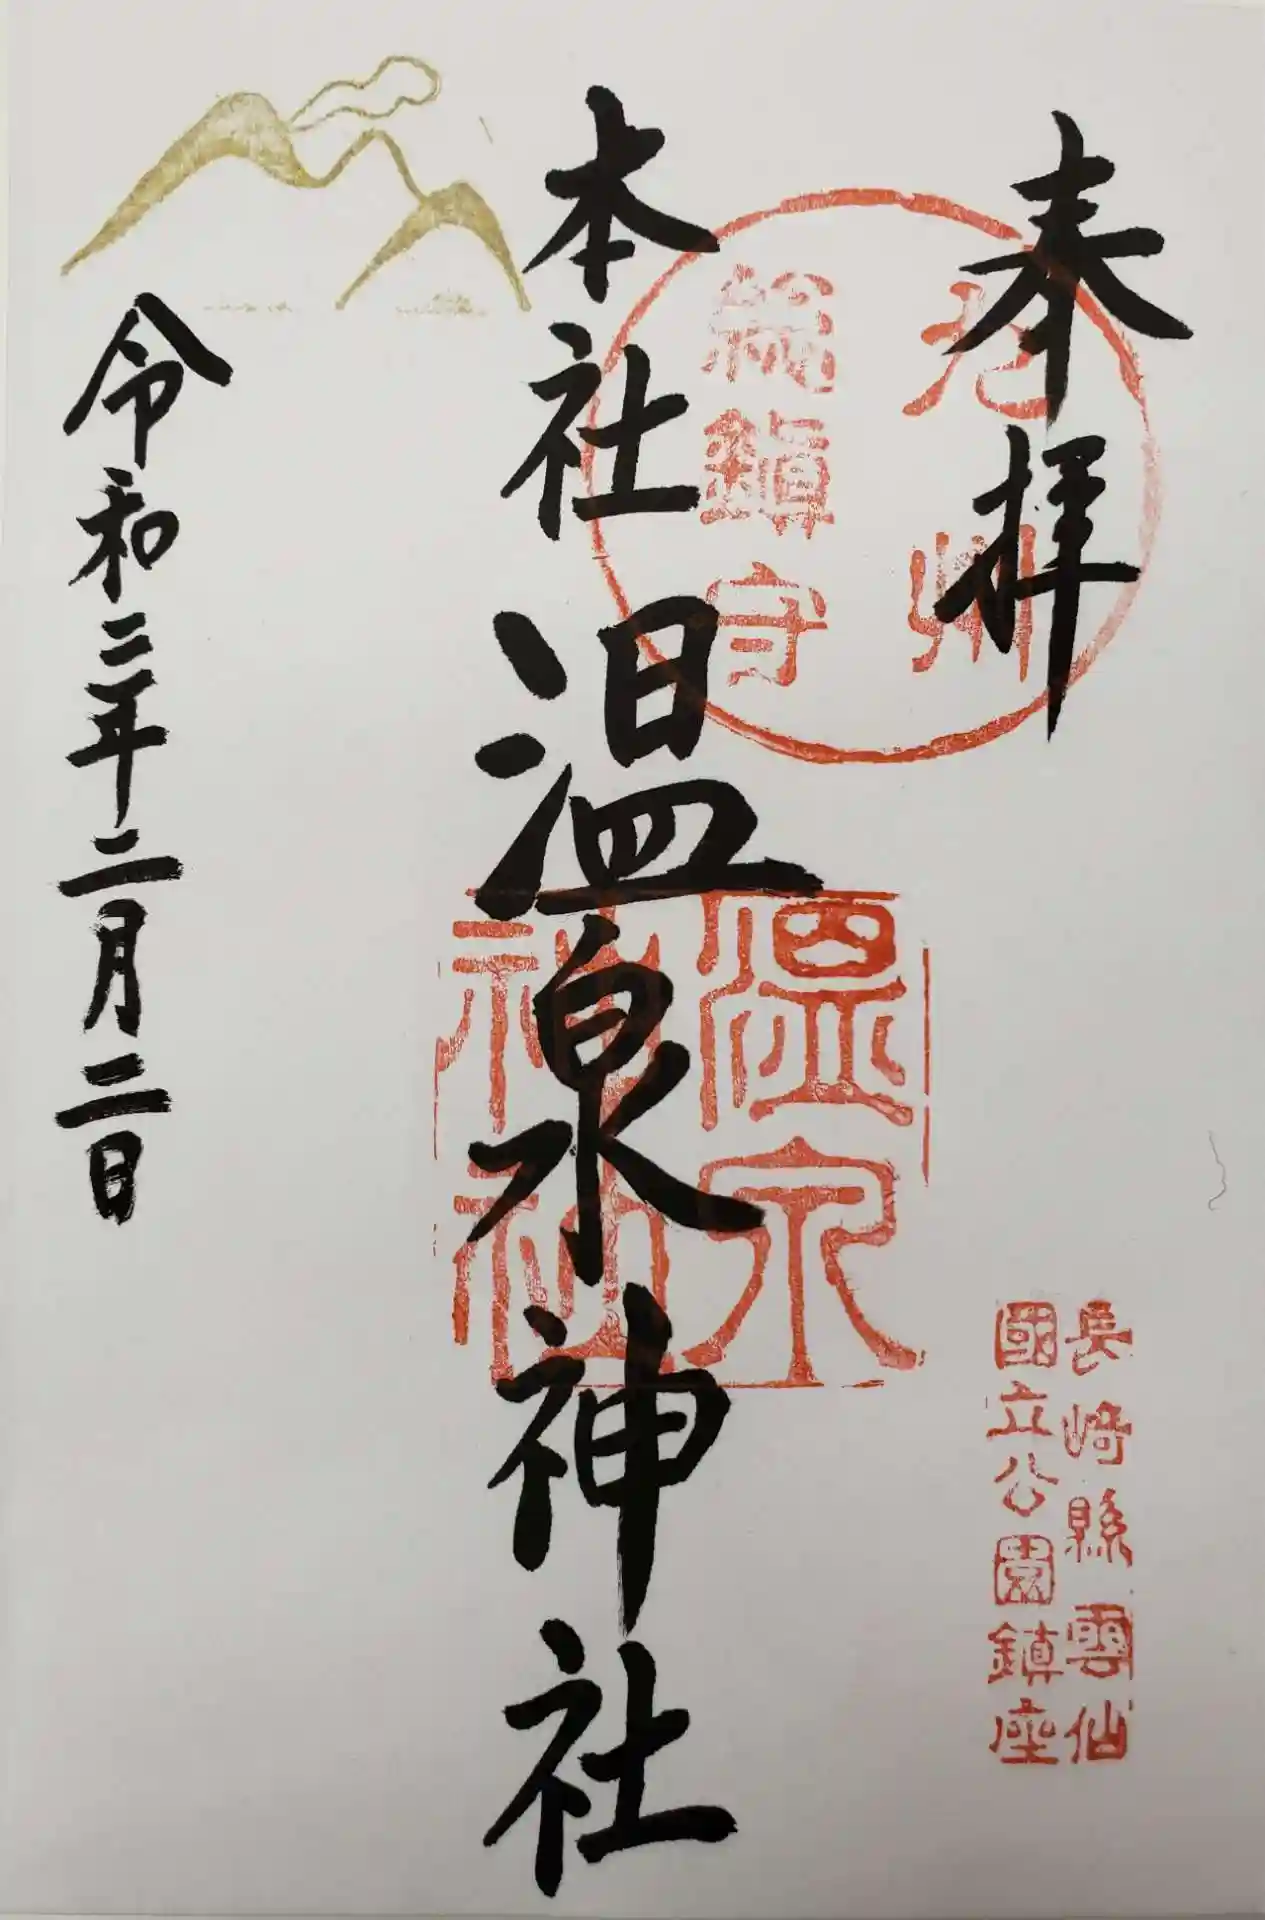 奉拝
九州
総鎮守
長崎縣雲仙
國立公園鎮座
本社温泉神社
温泉
神社
令和三年二月二日